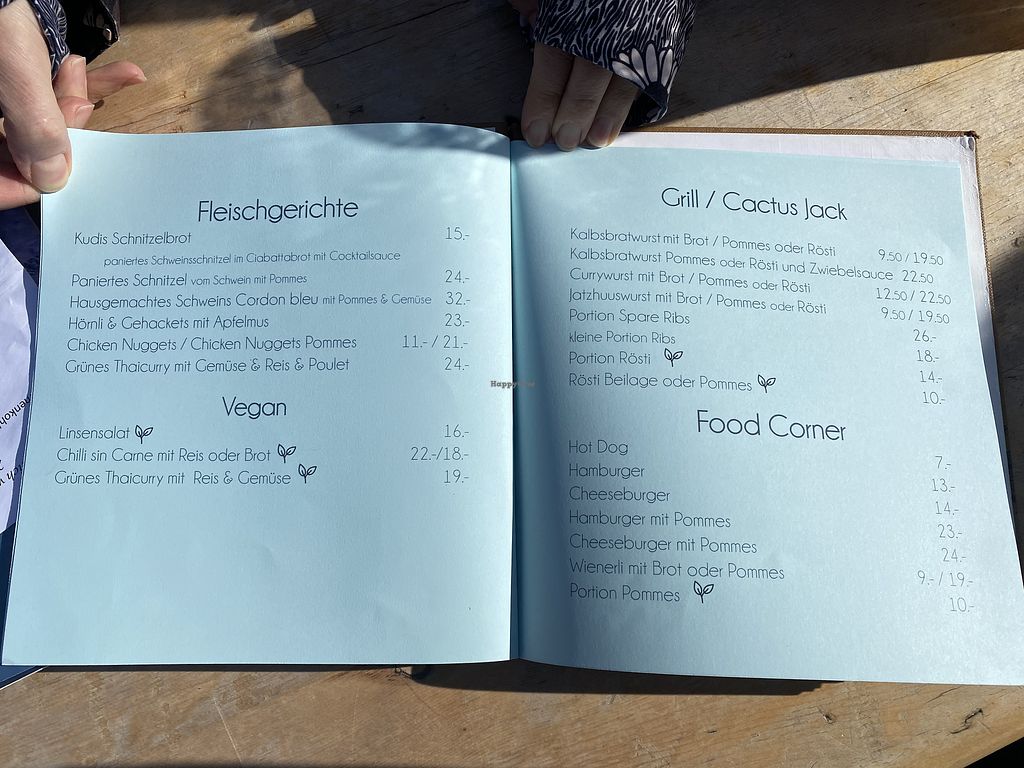 Fleischgerichte
Kudis Schnitzelbrot 15.-
paniertes Schweinsschnitzel im Ciabattabrot mit Cocktailsauce
Paniertes Schnitzel vom Schwein mit Pommes 24.-
Hausgemachtes Schweins Cordon bleu mit Pommes & Gemüse 32.-
Hörnli & Gehackets mit Apfelmus 23.-
Chicken Nuggets / Chicken Nuggets Pommes 11.- / 21.-
Grünes Thaicurry mit Gemüse & Reis & Poulet 24.-
Vegan
Linsensalat 16.-
Chilli sin Carne mit Reis oder Brot 22.-/18.-
Grünes Thaicurry mit Reis & Gemüse 19.-
Grill / Cactus Jack
Kalbsbratwurst mit Brot / Pommes oder Rösti 9.50 / 19.50
Kalbsbratwurst Pommes oder Rösti und Zwiebelsauce 22.50
Currywurst mit Brot / Pommes oder Rösti 12.50 / 22.50
Jatzhuuswurst mit Brot / Pommes oder Rösti 9.50 / 19.50
Portion Spare Ribs 26.-
kleine Portion Ribs 18.-
Portion Rösti 14.-
Rösti Beilage oder Pommes 10.-
Food Corner
Hot Dog 7.-
Hamburger 13.-
Cheeseburger 14.-
Hamburger mit Pommes 23.-
Cheeseburger mit Pommes 24.-
Wienerli mit Brot oder Pommes 9.- / 19.-
Portion Pommes 10.-